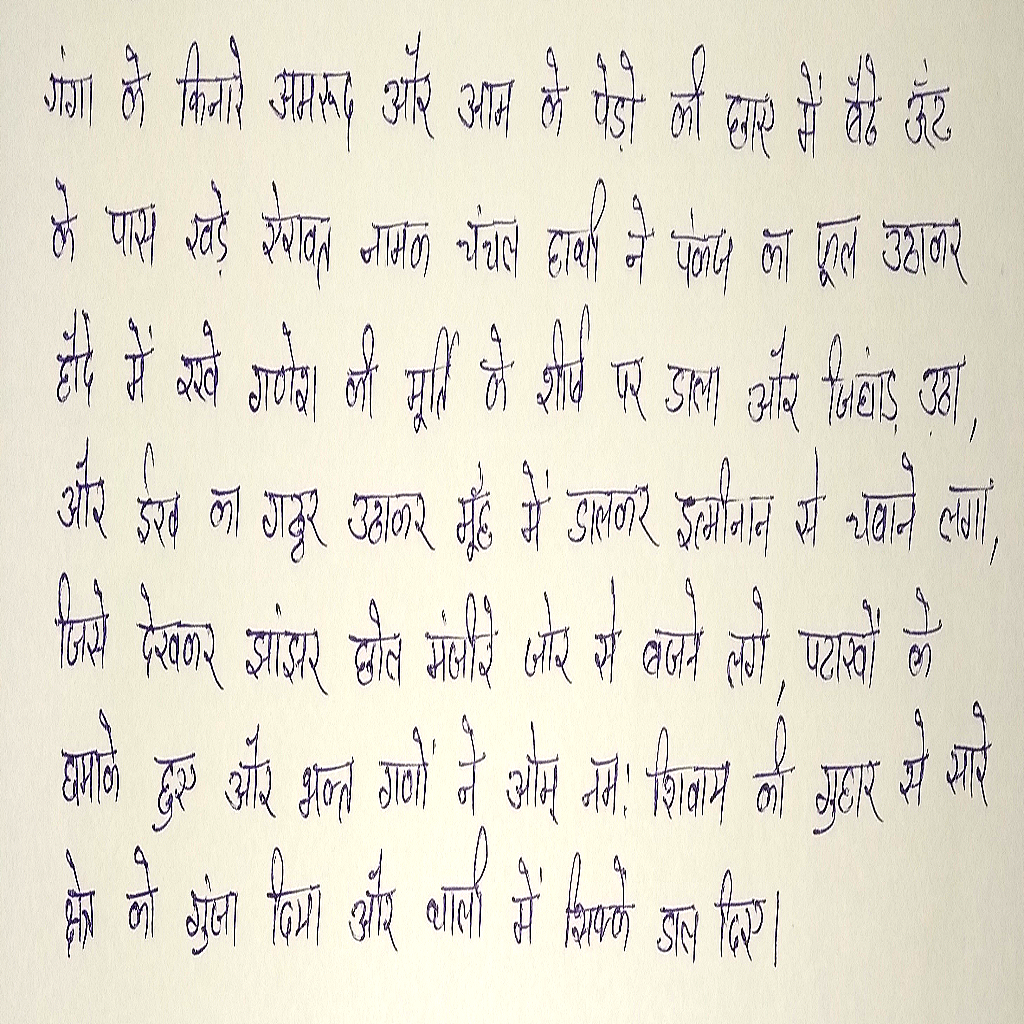 गंगा के किनारे अमरूद और आम के पेड़ो की छाए में बैठे ऊँट
के पास खड़े ऐरावत नामक चंचल हाथी ने पंकज का फूल उठाकर
हौदे में रखे गणेश की मूर्ति के शीर्ष पर डाला और चिंघाड़ उठा,
और ईख का गट्ठर उठाकर मूँह में डालकर इत्मीनान से चबाने लगा,
जिसे देखकर झांझर ढोल मंजीरे जोर से बजने लगे, पटाखों के
धमाके हुए और भक्त गणों ने ओम् नम: शिवाय की गुहार से सारे
क्षेत्र को गुंजा दिया और थाली में सिक्के डाल दिए।